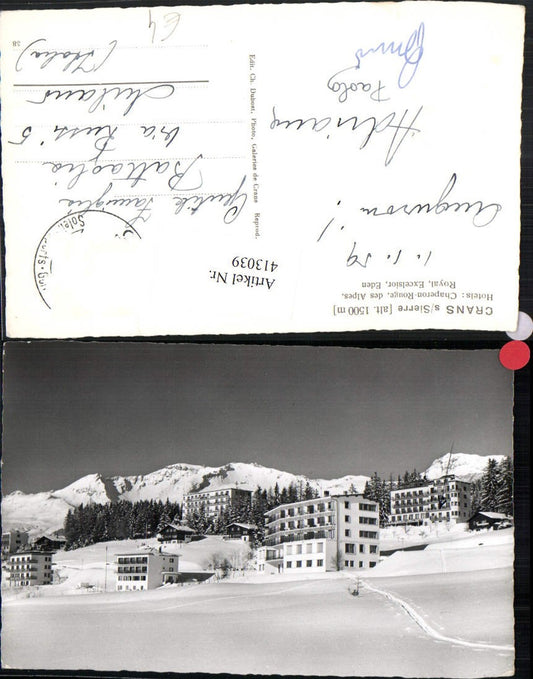 CRANS s/Sierre [alt. 1500 m]
Hotels: Chaperon-Rouge, des Alpes,
Royal, Excelsior, Eden
1.1.59
Auguroni!
Adriana
Paolo
Edit. Ch. Dubost, Photo, Galeries de Crans Reprod.
Gentile Famiglia
Battaglia
Via Russi 5
Milano
(Italia)
38
€4
Artikel Nr.
413039